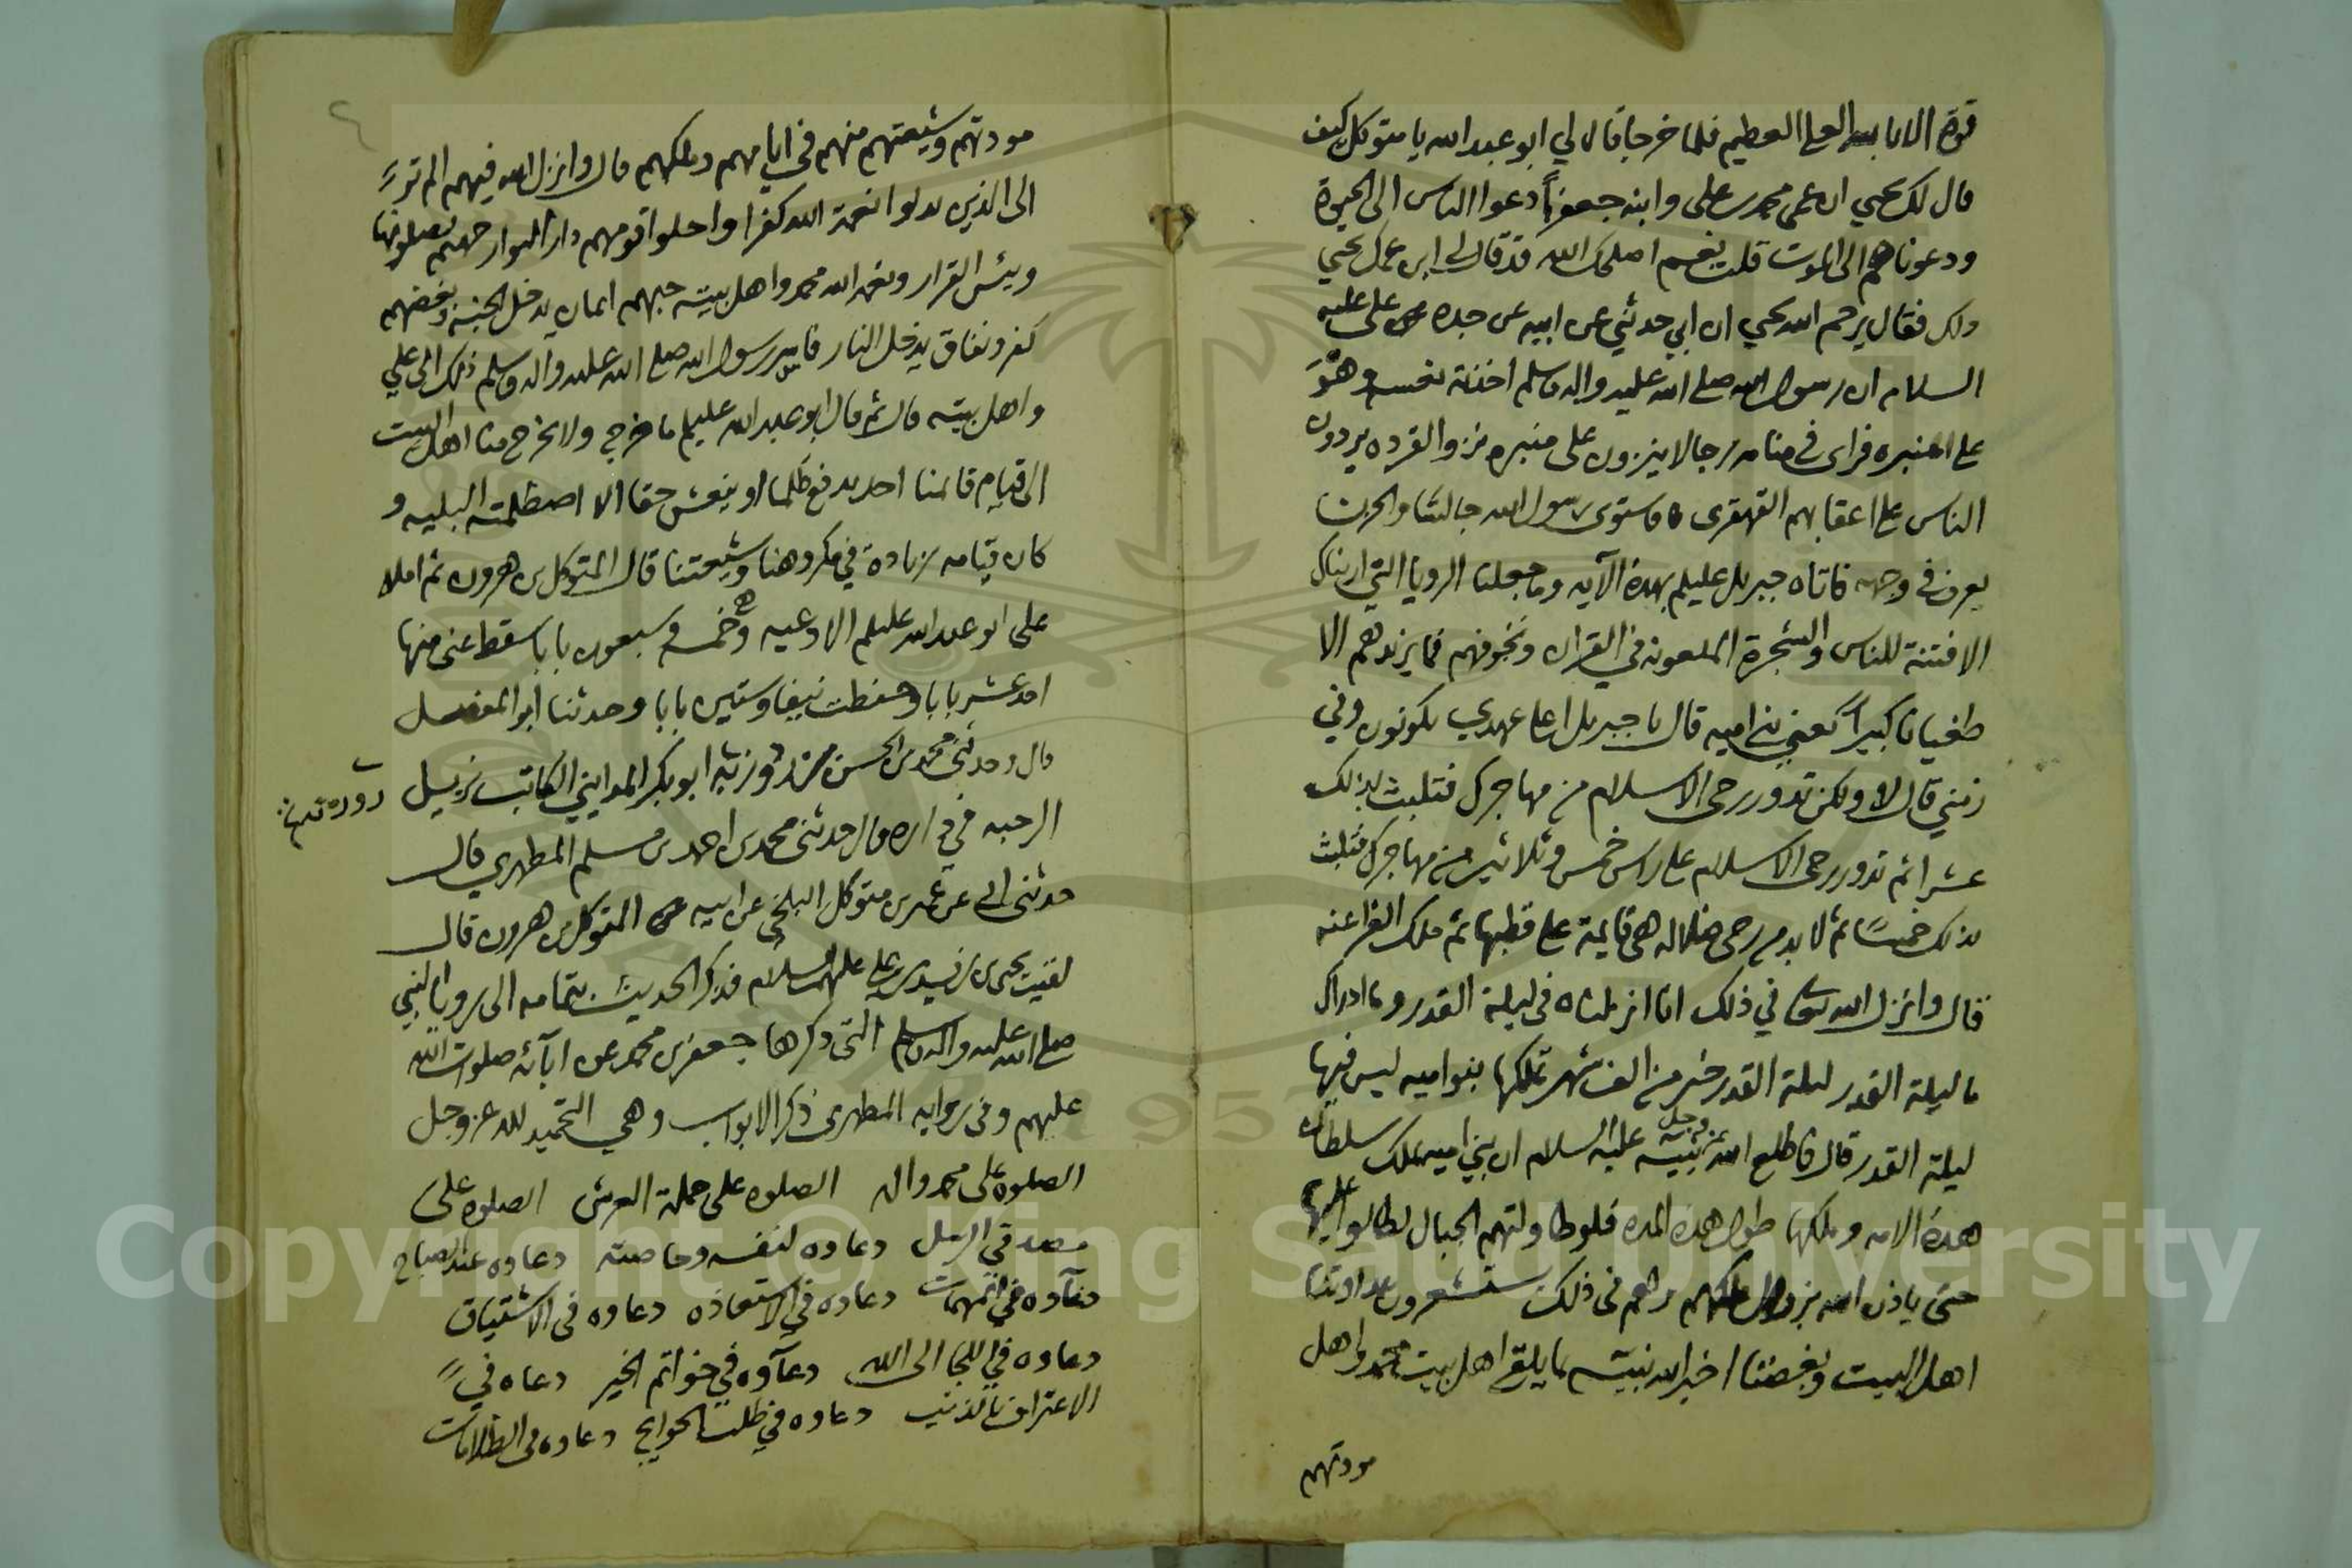 قوة الا بالله العلي العظيم فلما خرجا قال لي ابو عبد الله يا متوكل كيف
قال لك يحيي ان عمي محمد بن علي وابنه جعفراً دعوا الناس الى الحيوة
ودعوناهم الى الموت قلت نعم اصلحك الله قد قال لي ابن عمك يحيي
ذلك فقال يرحم الله يحيي ان ابي حدثني عن ابيه عن جده عن علي عليه
السلام ان رسول الله صلى الله عليه واله وسلم اخذته نعسة وهُوَ
على المنبره فراى في منامه رجالا ينزون على منبره نزو القرده يردون
الناس على اعقابهم القهقرى فاستوى رسول الله جالسًا والحزن
يعرف في وجهه فاتاه جبريل عليلم بهذه الآيه وما جعلنا الرويا التي اريناك
الا فتنة للناس والشجرة الملعونه في القران ونخوفهم فما يزيدهم الا
طغيانا كبيراً يعني بني اميه قال يا جبريل اعلى عهدي يكونون وفي
زمني قال لا ولكن تدور رحى الاسلام من مهاجرك فتلبث بذلك
عشرا ثم تدور رحى الاسلام على راس خمس وثلاثين من مهاجرك فتلبث
بذلك خمسًا ثم لا بد من رحى ضلاله هي قايمة على قطبها ثم ملك الفراعنه
قال وانزل الله تعالى في ذلك انا انزلناه في ليلة القدر وما ادراك
ما ليلة القدر ليلة القدر خير من الف شهر تملكها بنو اميه ليس فيها
ليلة القدر قال فاطلع الله عز وجل نبيه عليه السلام ان بني اميه تملك سلطان
هذه الامه وملكها طول هذه المده فلو طاولتهم الجبال لطالوا عليها
حتى ياذن الله بزوال ملكهم وهم في ذلك يستشعرون عداوتنا
اهل البيت وبغضنا اخبر الله نبيه بما يلقى اهل بيت محمد واهل
مودتهم
مودتهم وشيعتهم منهم في ايامهم وملكهم قال وانزل الله فيهم الم تر
الى الذين بدلوا نعمة الله كفرا واحلوا قومهم دار البوار جهنم يصلونها
وبئس القرار ونعمة الله محمد واهل بيته حبهم ايمان يدخل الجنه وبغضهم
كفر ونفاق يدخل النار فاسر رسول الله صلى الله عليه واله وسلم ذلك الى علي
واهل بيته قال ثم قال ابو عبد الله عليلم ما خرج ولا يخرج منا اهل البيت
الى قيام قائمنا احد يدفع ظلما او ينعش حقا الا اصطلمته البليه و
كان قيامه زيادة في مكروهنا وشيعتنا قال المتوكل بن هرون ثم املا
على ابو عبد الله عليلم الادعيه وهي خمسه وسبعون بابا سقط عني منها
احد عشر بابا وحفظت نيفا وستين بابا وحدثنا ابو المفضل
قال وحدثني محمد بن الحسن بن روزبه ابو بكر المدايني الكاتب نزيل
الرحبه في داره قال حدثني محمد بن احمد بن مسلم المطهري قال
حدثني ابي عن عمير بن متوكل البلخي عن ابيه عن المتوكل بن هرون قال
لقيت يحيى بن زيد بن علي عليهم السلام فذكر الحديث بتمامه الى رويا النبي
صلى الله عليه واله وسلم التي ذكرها جعفر بن محمد عن ابآئه صلوات الله
عليهم وفي روايه المطهري ذكر الابواب وهي التحميد لله عز وجل
الصلوه على محمد واله الصلوه على حملة العرش الصلوه على
مصدقي الرسل دعاوه لنفسه وخاصته دعاوه عند الصباح
دعآوه في المهمات دعاوه في الاستعاذه دعاوه في الاشتياق
دعاوه في اللجا الى الله دعآوه في خواتم الخير دعاه في
الاعتراف بالذنب دعاوه في طلب الحوايج دعاوه في الظلامات
Copyright © King Saud University